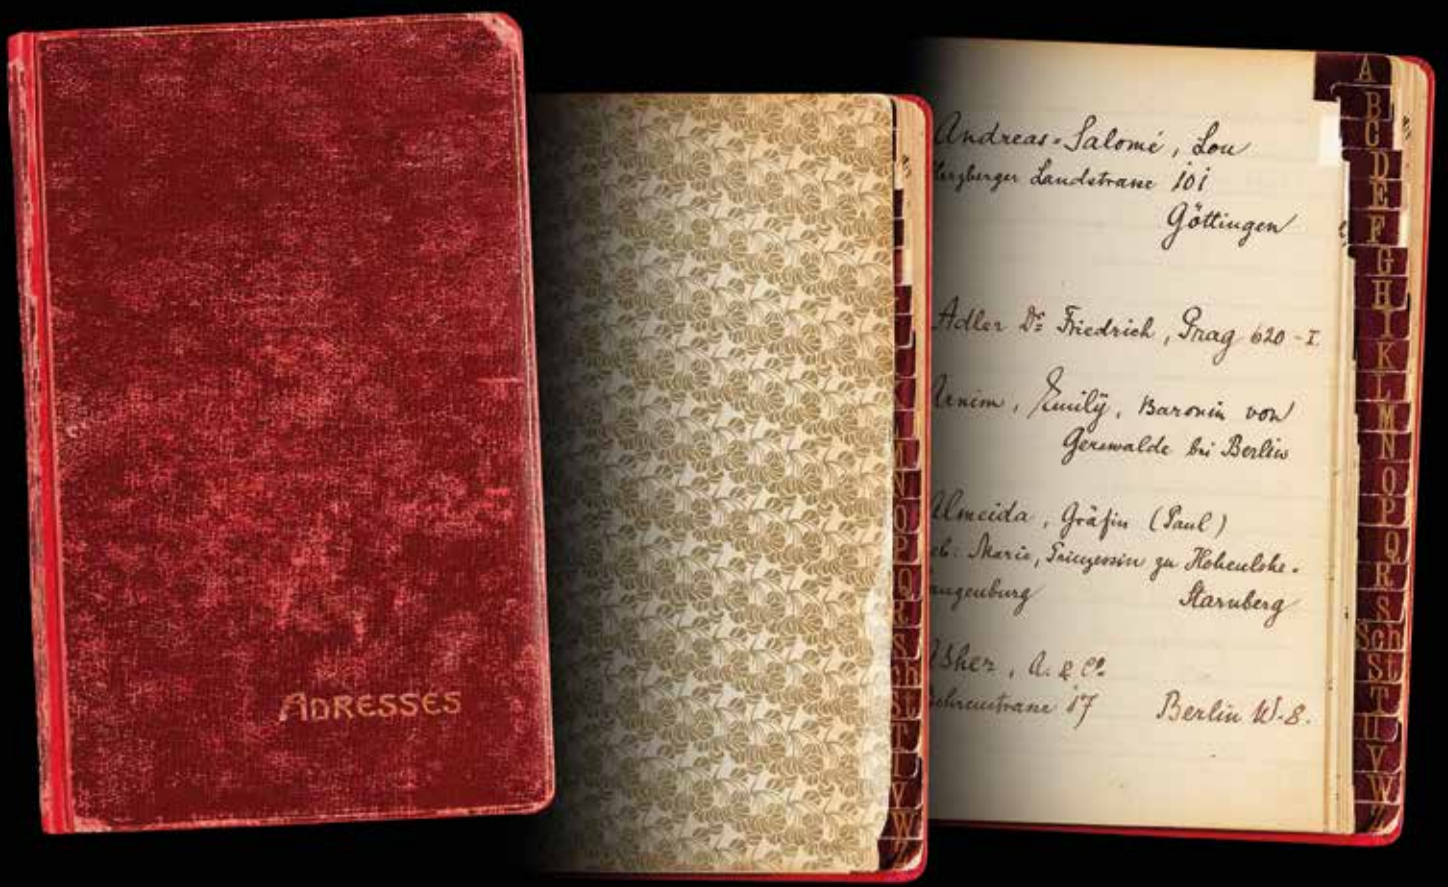 ADRESSES
N
O
P
Q
R
S
Sch
St
T
V
W
Andreas-Salomé, Lou
Landstrasse 101
Göttingen
Adler Dr. Friedrich, Prag 620-I.
Arnim, Emily, Baronin von
Gerswalde bei Berlin
Almeida, Gräfin (Paul)
geb. Marie, Prinzessin zu Hohenlohe-
Starnberg
Asher, A. & Co.
17 Berlin W.-8.
A
B
C
D
E
F
G
H
I
K
L
M
N
O
P
Q
R
S
Sch
St
T
U
V
W